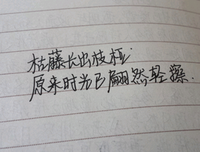 枯藤长出枝桠
原来时光已翩然轻擦.